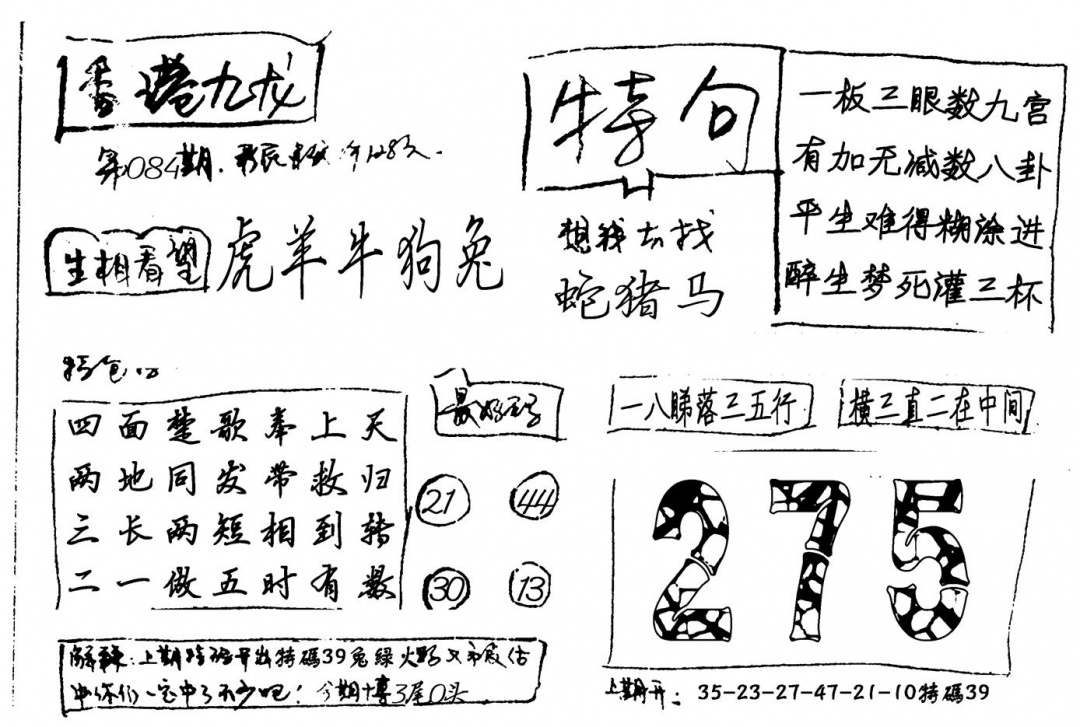 香港九龙
第084期.
特句
一板三眼数九宫
有加无减数八卦
平生难得糊涂进
醉生梦死灌三杯
生相看望
虎羊牛狗兔
想我去找
蛇猪马
四面楚歌奉上天
两地同发带救归
三长两短相到转
二一做五时有数
最好
21 44
30 13
一八睇落三五行
横三直二在中间
275
解释:上期特码开出特碼39兔綠火野
中你们一定中了不少吧!今期博3尾0头
上期开:35-23-27-47-21-10特碼39